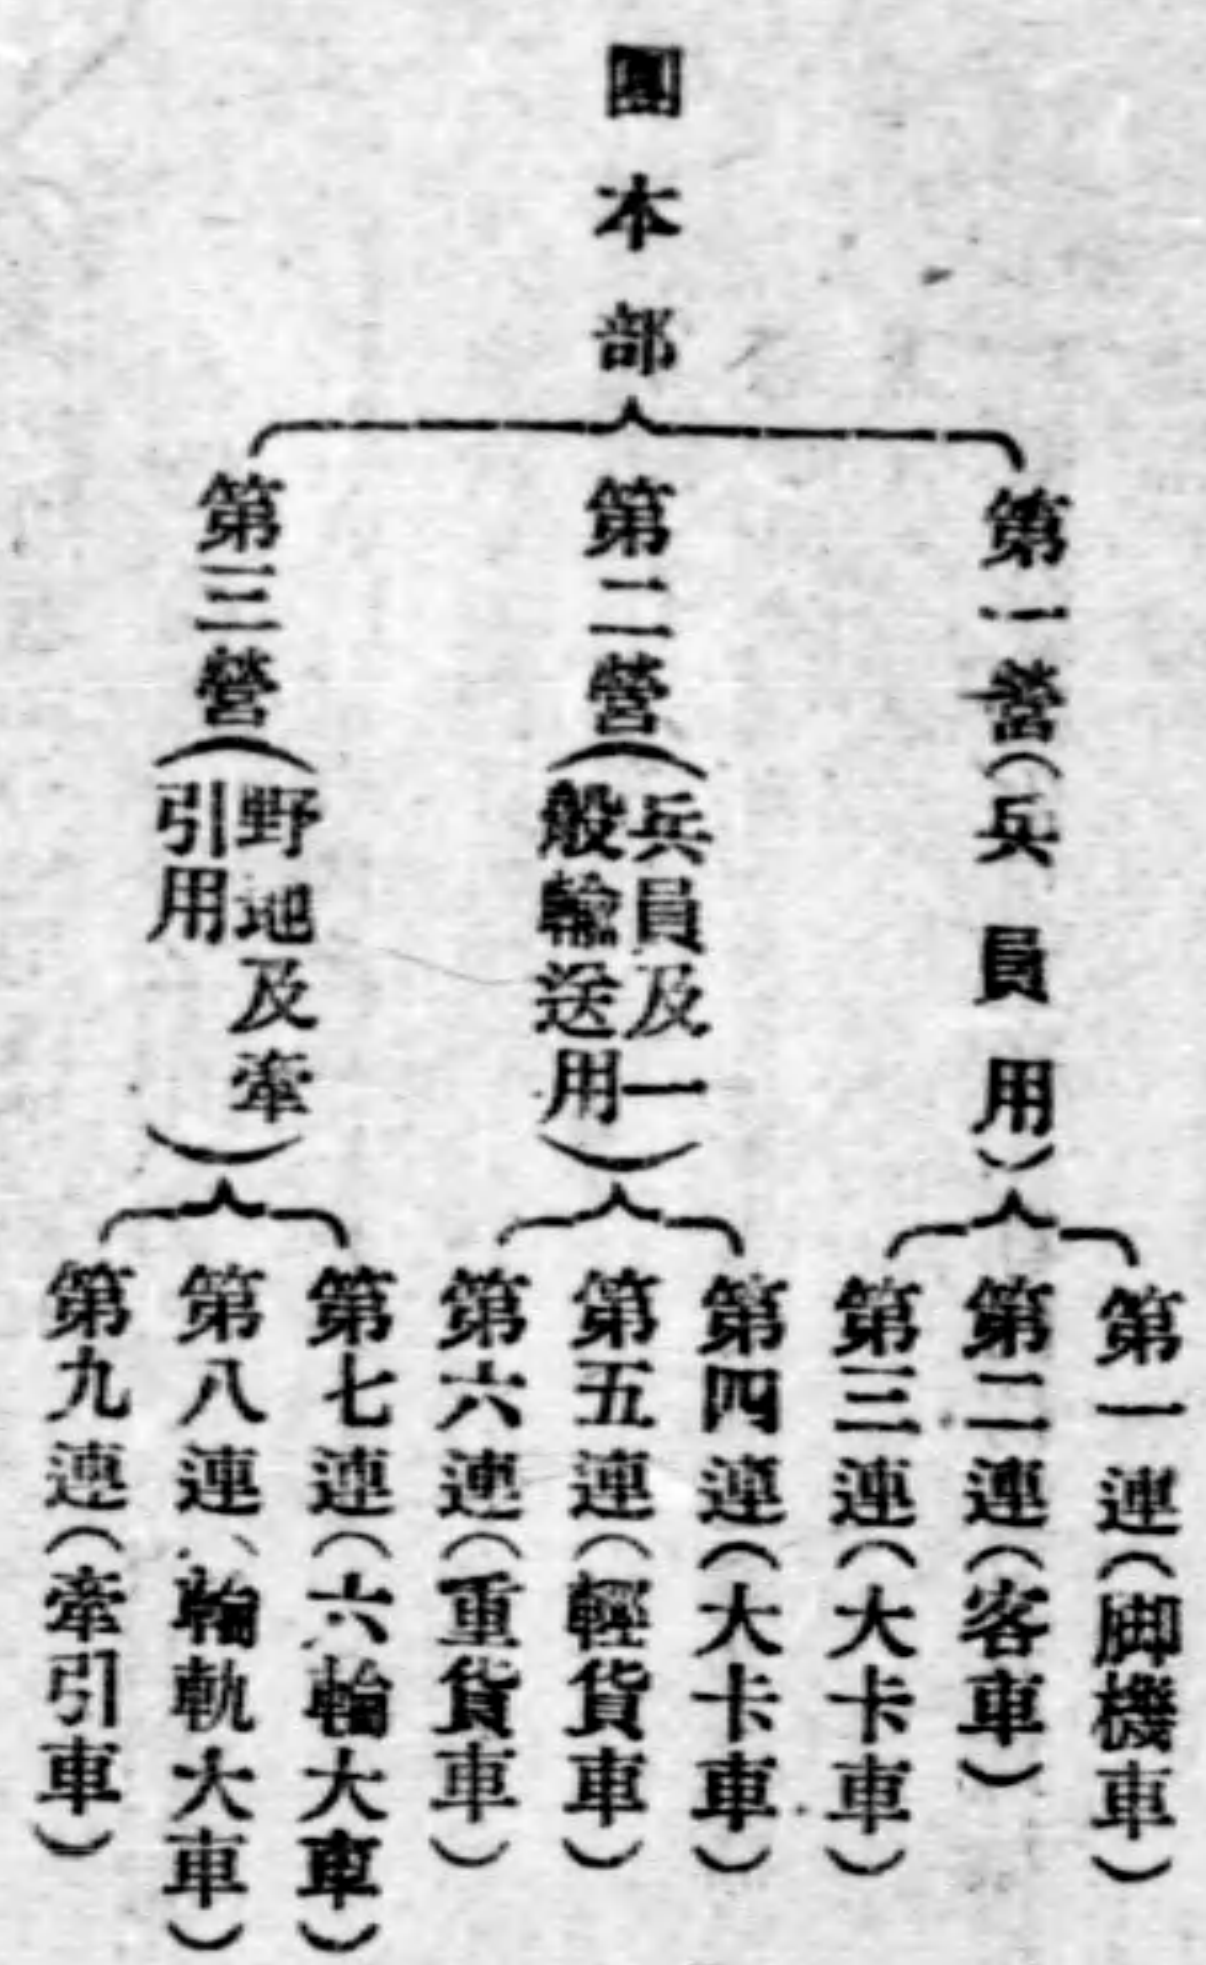 團本部
第一營(兵員用)
第一連(脚機車)
第二連(客車)
第三連(大卡車)
第二營(兵員及一
般輸送用)
第四連(大卡車)
第五連(輕貨車)
第六連(重貨車)
第三營(野地及牽
引用)
第七連(六輪大車)
第八連(輪軌大車)
第九連(牽引車)